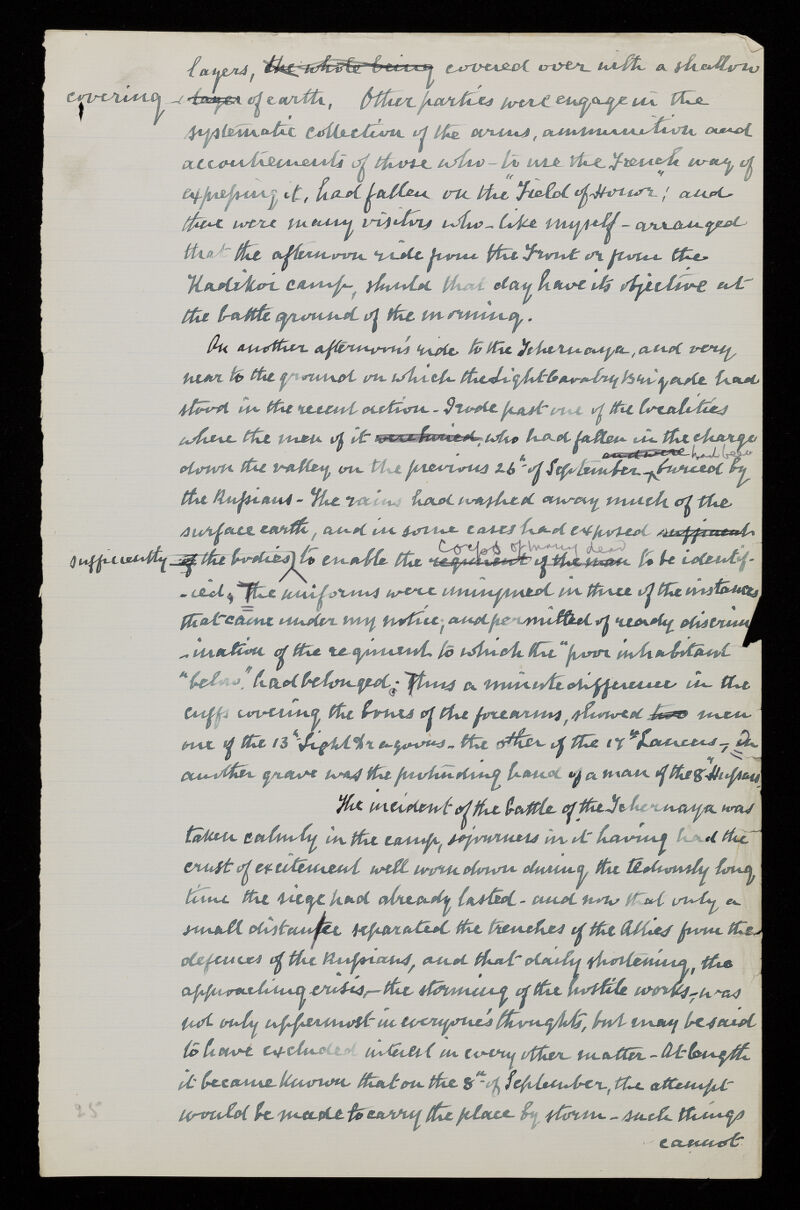 layers, the whole being covered over with a shallow
covering layer of earth. Other parties were engage in the
systematic collection of the arms, ammunition and
accoutrements of those who - to use the French way of
expressing it, had fallen on the "Field of Honor"; and
there were many visitors who - like myself - arranged
that the afternoon ride from the Front or from the
Kadikoi camp, should that day have its objective at
the battle ground of the morning.
On another afternoon's ride to the Tchernaya, and very
near to the ground on which the Light Cavalry Brigade had
stood in the recent action - I rode past one of the localities
where the men of it were buried, who had fallen in the charge
and were had been
down the valley on the previous 26th of September - buried by
the Russians - The rains had washed away much of the
surface earth, and in some cases had exposed sufficient
corps of many dead
sufficiently of the bodies to enable the regiment of the man to be identif-
-ied, The uniforms were uninjured in three of the instances
that came under my notice; and permitted of ready discrim
-ination of the regiment to which the "poor inhabitant
"below" had belonged; Thus a minute difference in the
cuffs covering the bones of the forearms, showed two men
one of the 13th Light Dragoons - the other of the 17th Lancers -, In
another grave was the protruding hand of a man of the 8th Hussars
The incident of the battle of the Tchernaya was
taken calmly in the camp, sojourners in it having had the
crust of excitement well worn down during the tediously long
time the siege had already lasted - and now that only a
small distance separated the trenches of the Allies from the
defences of the Russians, and that daily shortening, the
approaching crisis, - the storming of the hostile works, - was
not only uppermost in everyone's thoughts, but may be said
to have excluded interest in every other matter - At length
it became known that on the 8th of September, the attempt
would be made to carry the place by storm - such things
cannot
25